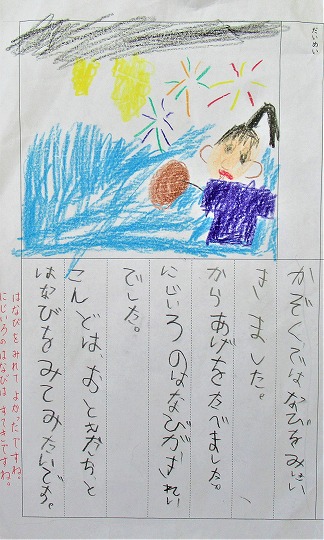 だいめい
かぞくではなびをみにい
きました。
からあげをたべました。
にじいろのはなびがきれい
でした。
こんどは、おともだちと
はなびをみてみたいです。
はなびをみれてよかったですね。
にじいろのはなびはすてきですね。